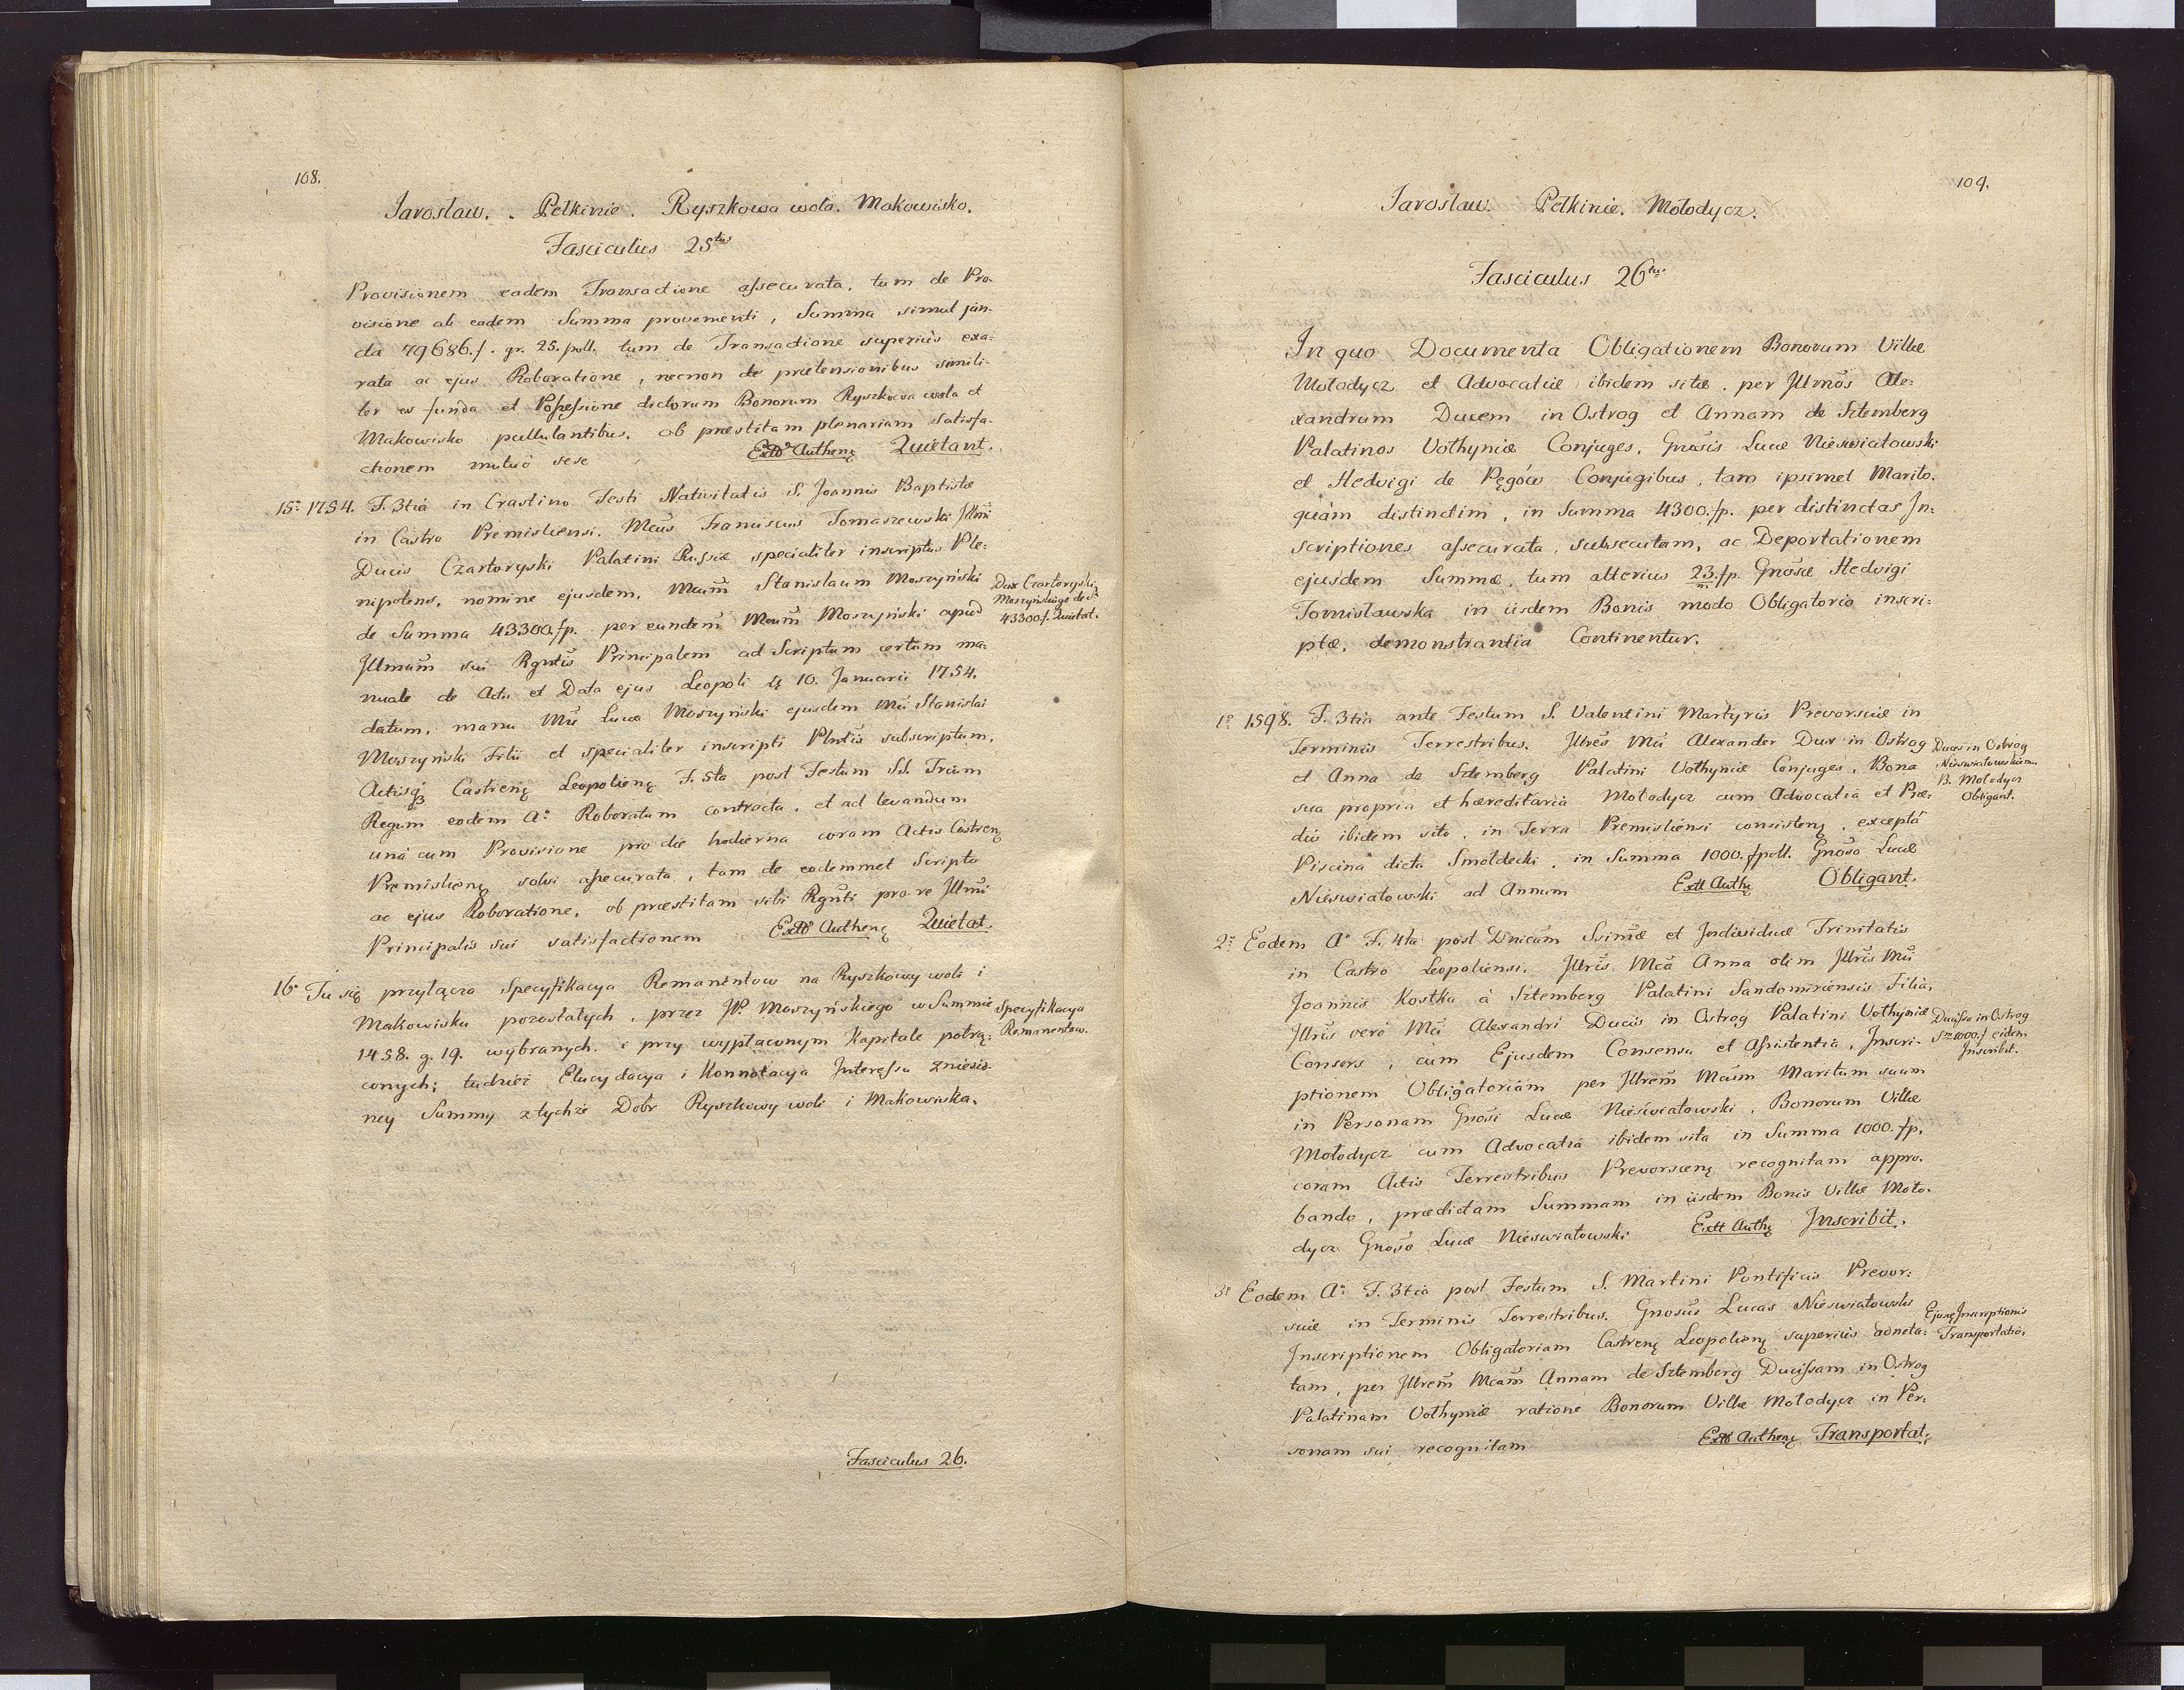 108.
Jarosław. . Pełkinie. Ryszkowa wola. Makowisko.
Fasciculus 25tus
Provisionem eadem Transactione assecurata, tum de Pro-
visione ab eadem Summa provenienti, Summa simul jun-
cta 79686.f. gr. 25. poll. tum de Transactione superius exa-
rata ac ejus Roboratione, necnon de prætensionibus simili-
ter ex funda et Possessione dictorum Bonorum Ryszkowa wola et
Makowisko pullulantibus, ob præstitam plenariam satisfa-
ctionem mutuò sese Extr Authenę Quietant.
15º 1754. F. 3tiâ in Crastino Festi Nativitatis S. Joannis Baptistæ
in Castro Premisliensi. Mcus Franciscus Tomaszewski Jllmi
Ducis Czartoryski Palatini Russiæ specialiter inscriptus Ple-
nipotens, nomine ejusdem, Mcum Stanislaum Moszyński
de Summa 43300.fp. per eundem Mcum Moszyński apud
Jllmum sui Rgntis Principalem ad Scriptum certum ma-
nuale de Actu et Data ejus Leopoli d 10. Januarii 1754.
datum, manu Mci Lucæ Moszyński ejusdem Mci Stanislai
Moszyński Filii et specialiter inscripti Plntis subscriptum,
Actisq3 Castrenę Leopolienę F. 5ta post Festum SS. Trium
Regum eodem Aº Roboratum contracta, et ad levandum
unà cum Provisione pro die hodierna coram Actis Castrenę
Premislienę solvi assecurata, tam de eodemmet Scripto
ac ejus Roboratione, ob præstitam sibi Rgnti pro re Jllmi
Principalis sui satisfactionem Extr Authenę Quietat.
Dux Czartoryski
Moszyńskiego de Sa
43300f. Quietat.
16º Tu się przyłącza Specyfikacya Remanentow na Ryszkowy woli i
Makowisku pozostałych, przez JP. Moszyńskiego w Summie
1458. g. 19. wybranych. i przy wypłaconym Kapitale potrą-
conych; tudzież Elucydacya i Konnotacya Interessu zniesio-
ney Summy z tychże Dobr Ryszkowy woli i Makowiska.
Specyfikacya
Remanentow.
Fasciculus 26.
109.
Jarosław. Pełkinie. Mołodycz.
Fasciculus 26tus
In quo Documenta Obligationem Bonorum Villæ
Mołodycz et Advocatiæ ibidem sitæ, per Jllmos Ale-
xandrum Ducem in Ostrog et Annam de Sztemberg
Palatinos Vołhyniæ Conjuges, Gnosis Lucæ Nieswiatowski
et Hedvigi de Pęgów Conjugibus, tam ipsimet Marito,
quàm distinctim, in Summa 4300.fp. per distinctas Jn-
scriptiones assecurata, subsecutam, ac Deportationem
ejusdem Summæ, tum alterius 23.fp. Gnosæ Hedvigi
m
Tomisławska in iisdem Bonis modo Obligatorio inscri-
ptæ, demonstrantia Continentur.
1º 1598. F. 3tia ante Festum S. Valentini Martyris Prevorsciæ in
Terminis Terrestribus. Jllres Mci Alexander Dux in Ostrog
et Anna de Sztemberg Palatini Vołhyniæ Conjuges, Bona
sua propria et hæreditaria Mołodycz cum Advocatia et Præ-
dio ibidem sito, in Terra Premisliensi consistenę, exceptâ
Piscinâ dicta Smoldecki, in Summa 1000.fpoll. Gnoso Lucæ
Nieswiatowski ad Annum Extt Authę Obligant.
Duces in Ostrog
Nieswiatowskiemu
B. Mołodycz
Obligant.
2º Eodem Aº F. 4ta post Dnicam Ssimæ et Individuæ Trinitatis
in Castro Leopoliensi. Jllris Mca Anna olim Jllris Mci
Joannis Kostka à Sztemberg Palatini Sandomiriensis Filia,
Jllris verò Mci Alexandri Ducis in Ostrog Palatini Vołhyniæ
Consors, cum Ejusdem Consensu et Assistentia, Jnscri-
ptionem Obligatoriam per Jllrem Mcum Maritum suum
in Personam Gnosi Lucæ Nieświatowski, Bonorum Villæ
Mołodycz cum Advocatia ibidem sita in Summa 1000.fp.
coram Actis Terrestribus Prevorscenę recognitam appro-
bando, prædictam Summam in iisdem Bonis Villæ Moło-
dycz Gnoso Lucæ Nieswiatowski Extt Authę Jnscribit.
Ducissa in Ostrog
Sm 1000.f eidem
Jnscribit.
3º Eodem Aº F. 3tia post Festum S. Martini Pontificis Prevor-
sciæ in Terminis Terrestribus. Gnosus Lucas Nieswiatowski
Jnscriptionem Obligatoriam Castrenę Leopolienę superius adnota-
tam, per Jllrem Mcam Annam de Sztemberg Ducissam in Ostrog
Palatinam Vołhyniæ ratione Bonorum Villæ Mołodycz in Per-
sonam sui recognitam Extr Authenę Transportat.
Ejusę Jnscriptionis
Transportatio.